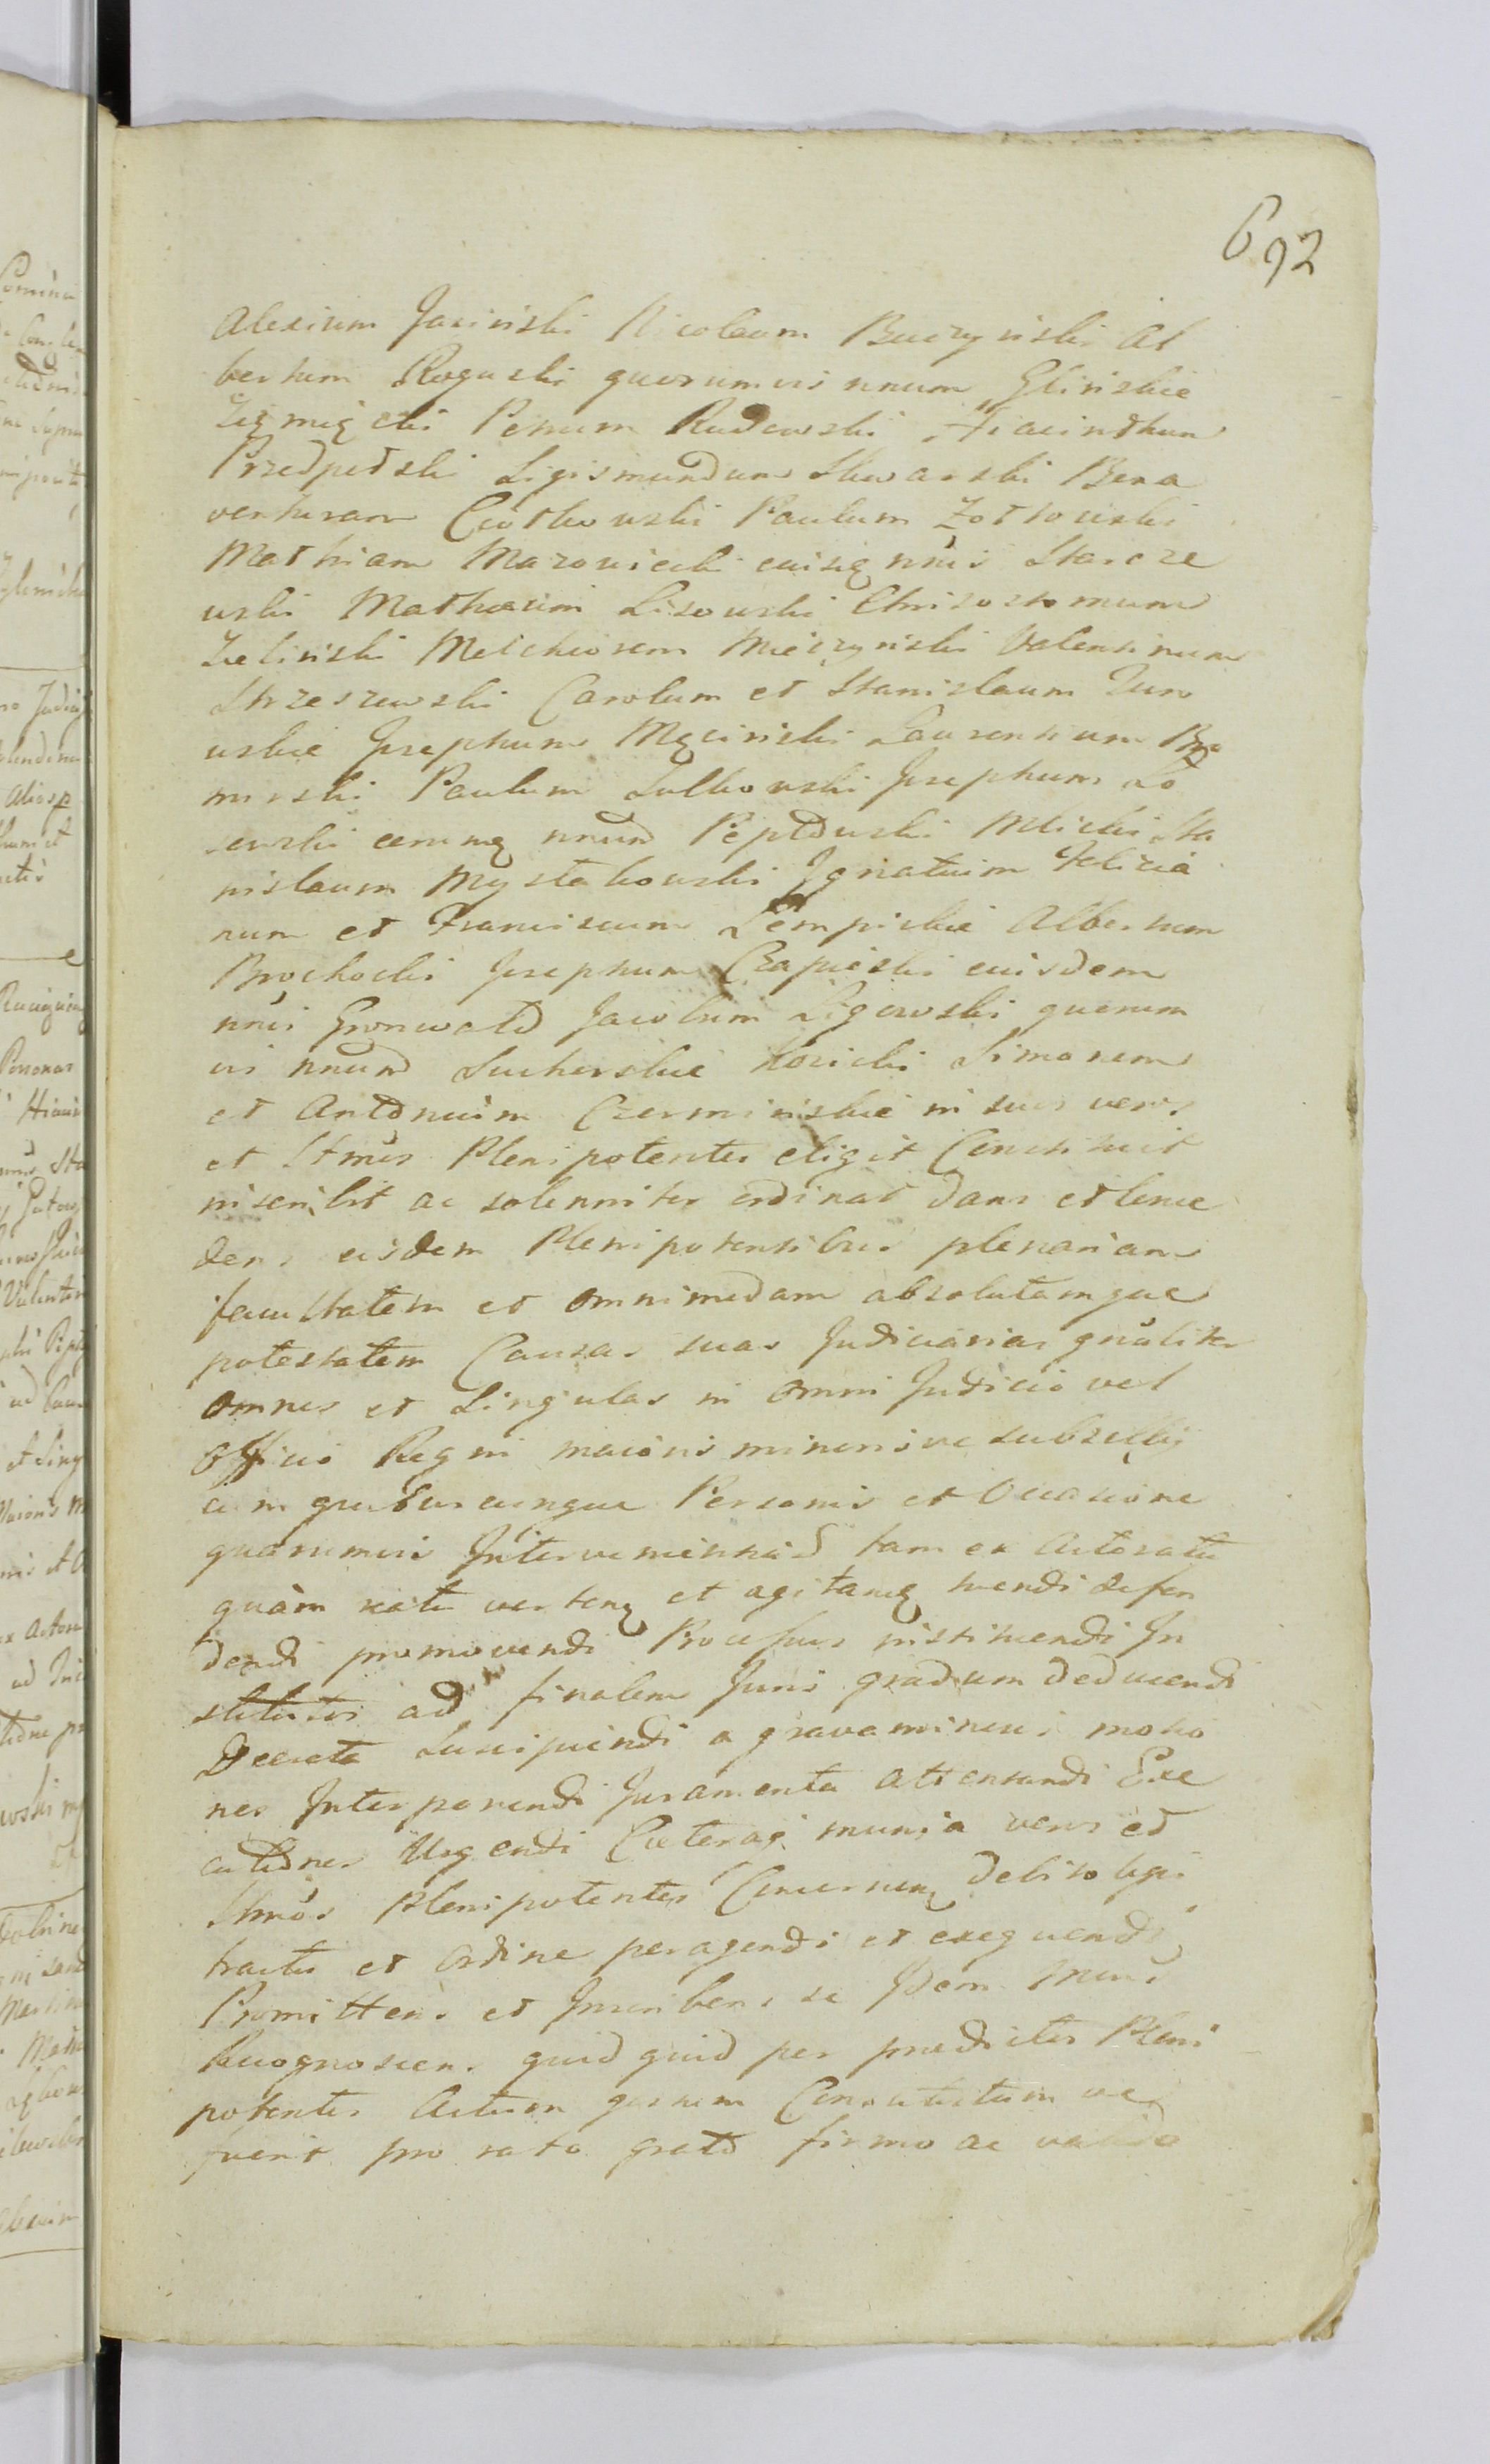 692
Alexium Jasinski Nicolaum Buczynski Al
bertum Roguski quorumvis nnum Glinskie
Petrum Rudowski Hiacinthum
Przedpełski Sigismundum Skwarski Bona
venturam Ciotkowski Paulum Żottowski
Mathiam Mazowiecki cuisq nnis Starcze
wski Mathaeum Lisowski Chrisostomum
Zielinski Melchiorem Mieczynski Valentinum
Strzeszewski Carolum et Stanislaum Turo
wskie Josephum Męcinski Laurentium
Paulum Sulkowski Josephum Lo
sewski eorumq nnum Mlicki Sta
nislaum Mystkowski Ignatium Felicia
num et Franciscum Lempickie Albertum
Brochocki Josephum Czapieski eiusdem
nnis Gronwald Jacobum Ligowski quorum
vis nnum Sucherskie Kosicki Simonem
et Antonium Czerminiskie in suos veros
et Ltmos Plenipotentes eligit Constituit
inscribit ac solenniter ordinat dans et conce
dens eisdem Plenipotentibus plenariam
facultatem et omnimodam absolutamque
potestatem Causas suas Judiciarias gnaliter
omnes et Singulas in omni Judicio vel
Officio Regni maioris minorisve subsellij
cum quibuscunque Personis et Occasione
quarumvis Intervenien tam ex Actoratu
quàm reatu verten et agitanq tuendi defen
dendi promovendi Processus instituendi In
stitutos ad finalem Juris gradum deducendi
Decreta Suscipiendi a gravaminibus motio
nes Interponendi Juramenta attentandi Exe
cutiones Urgendi Caeteraq munia veros et
Ltmos Plenipotentes Concernen debito legis
tractu et ordine peragendi et exequendi
Promittens et Inscribens se Idem Mnus
Recognoscens quidquid per praedictos Pleni
potentes Actum gestum Constitutum ve
fuerit pro rato grato firmo ac valido